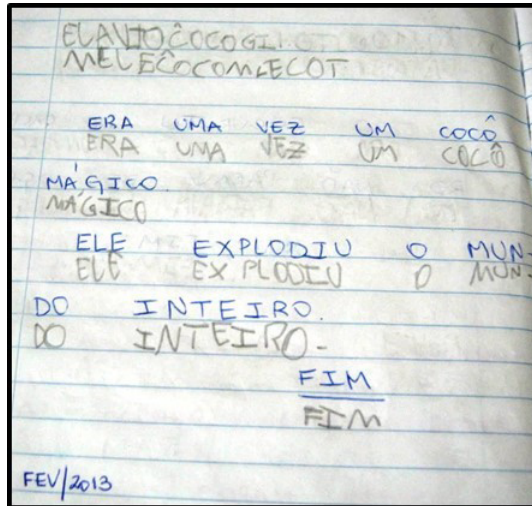 ELAVIOĈOCOGI
MELECOCOMLECOT
ERA UMA VEZ UM COCÔ
ERA UMA VEZ UM COCÔ
MÁGICO.
MÁGICO
ELE EXPLODIU O MUN-
ELE EXPLODIU O MUN-
DO INTEIRO.
DO INTEIRO.
FIM
FIM
FEV/2013